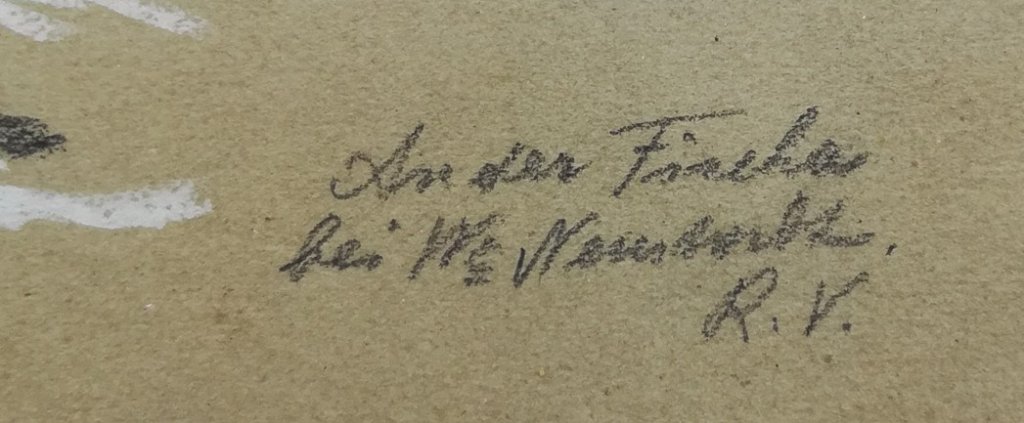 An der Fischa
bei Wr Neustadt.
R. V.